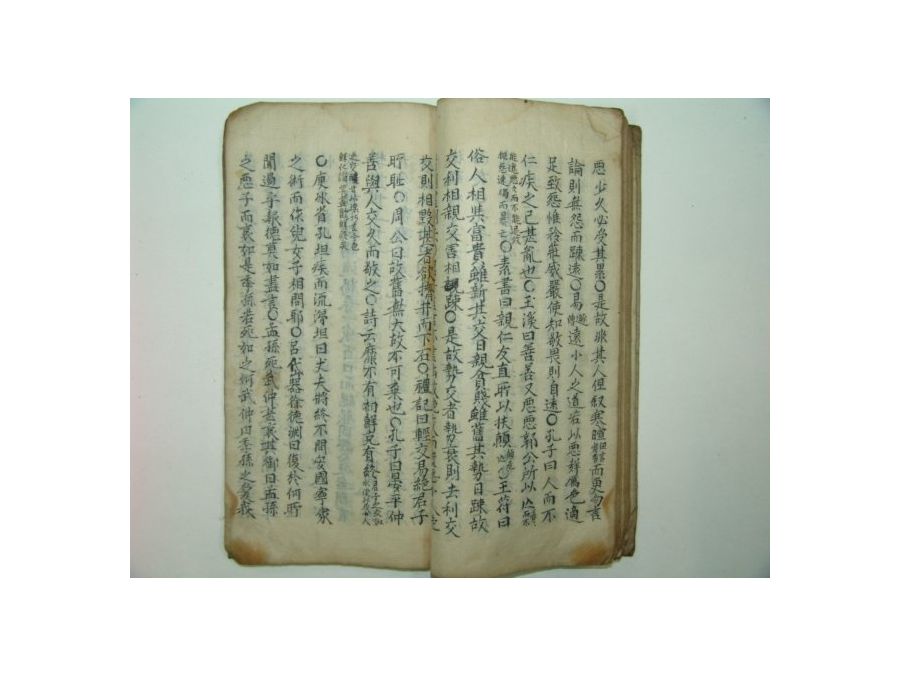 惡少久必受其累○是故非其人但叙寒暄而更勿言
論則無怨而踈遠○易遠小人之道若以惡聲厲色適
足致怨惟矜莊威嚴使知敬畏則自遠○孔子曰人而不
仁疾之已甚亂也○玉溪曰善善又惡惡郭公所以
○素書曰親仁友直所以扶顚○王符曰
俗人相與富貴雖新其交日親貧賤雖舊其勢日踈故
交利相親交害相踈○是故勢交者勢衰則去利交
交則相毀甚者欲擠井而下石○禮記曰輕交易絶君子
所耻○周公曰故舊無大故不可棄也○孔子曰晏平仲
善與人交久而敬之○詩云靡不有初鮮克有終
○庾冰省孔坦疾而流涕坦曰丈夫將終不問安國寧家
之術而作兒女子相問耶○呂岱器徐德淵曰復於何所
聞過乎報德莫如盡言○孟孫死武仲甚哀其御曰孟孫
之惡子而哀如是季孫若死如之何武仲曰季孫之愛我